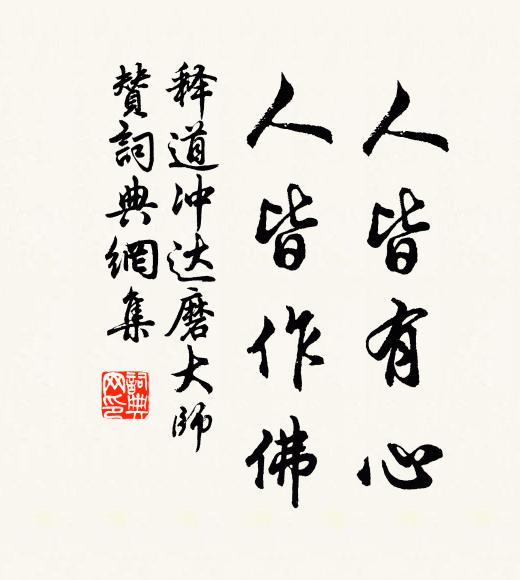 人皆有心
人皆作佛
释道冲达磨大师
赞詞典網集
詞典网印